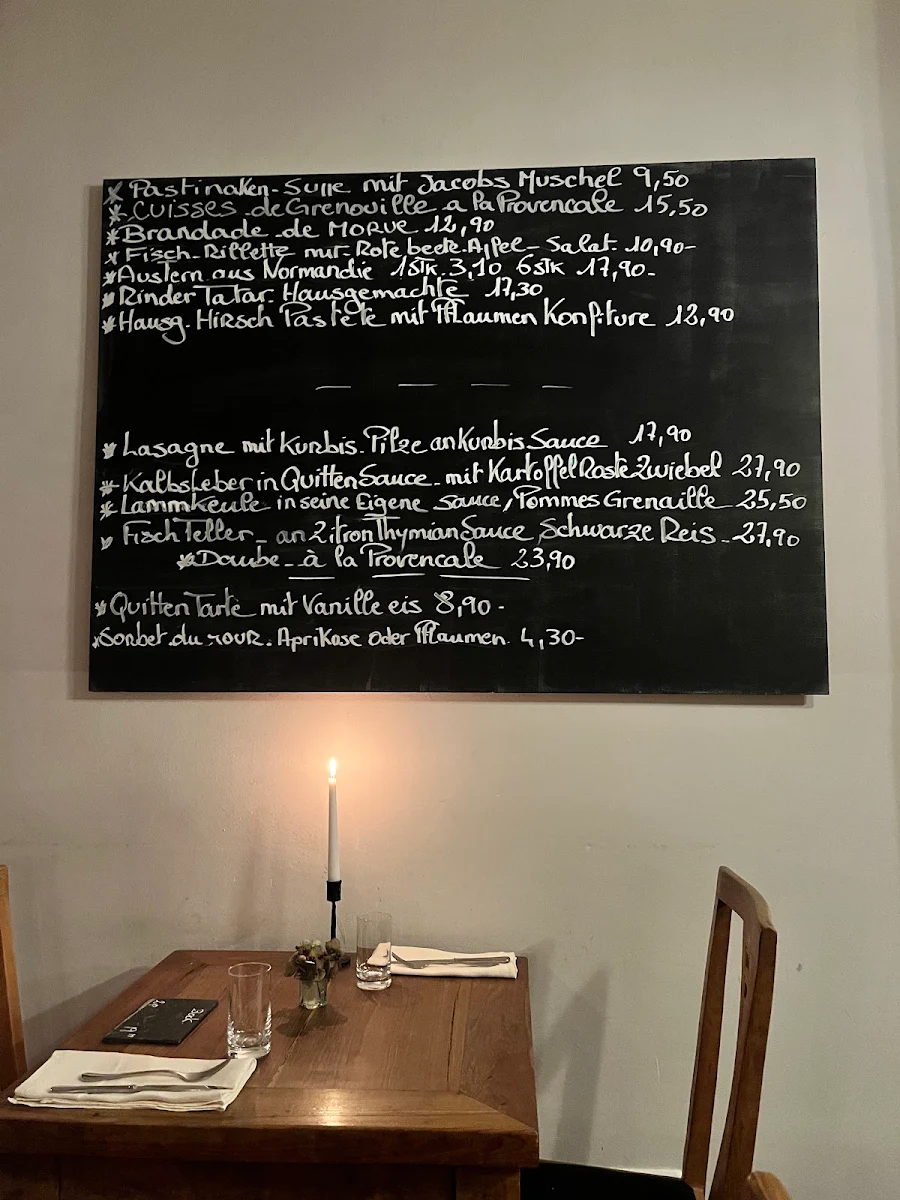 * Pastinaken-Suppe mit Jacobs Muschel 9,50
* CUISSES de Grenouille a la Provencale 15,50
* Brandade de MORUE 12,90
* Fisch-Rillette mit Rote beete-Apfel-Salat 10,90-
* Austern aus Normandie 1Stk. 3,10 6stk 17,90-
* Rinder Tatar Hausgemachte 17,30
* Hausg. Hirsch Pastete mit Pflaumen Konfiture 12,90
* Lasagne mit Kurbis. Pilze an Kurbis Sauce 17,90
* Kalbsleber in Quitten Sauce mit Kartoffel Roste Zwiebel 27,90
* Lammkeule in seine Eigene sauce, Pommes Grenaille 25,50
* Fisch Teller - an Zitron Thymian Sauce Schwarze Reis - 27,90
* Daube - à la Provencale 23,90
* Quitten Tarte mit Vanille eis 8,90 -
* Sorbet du JOUR. Aprikose oder Pflaumen 4,30-